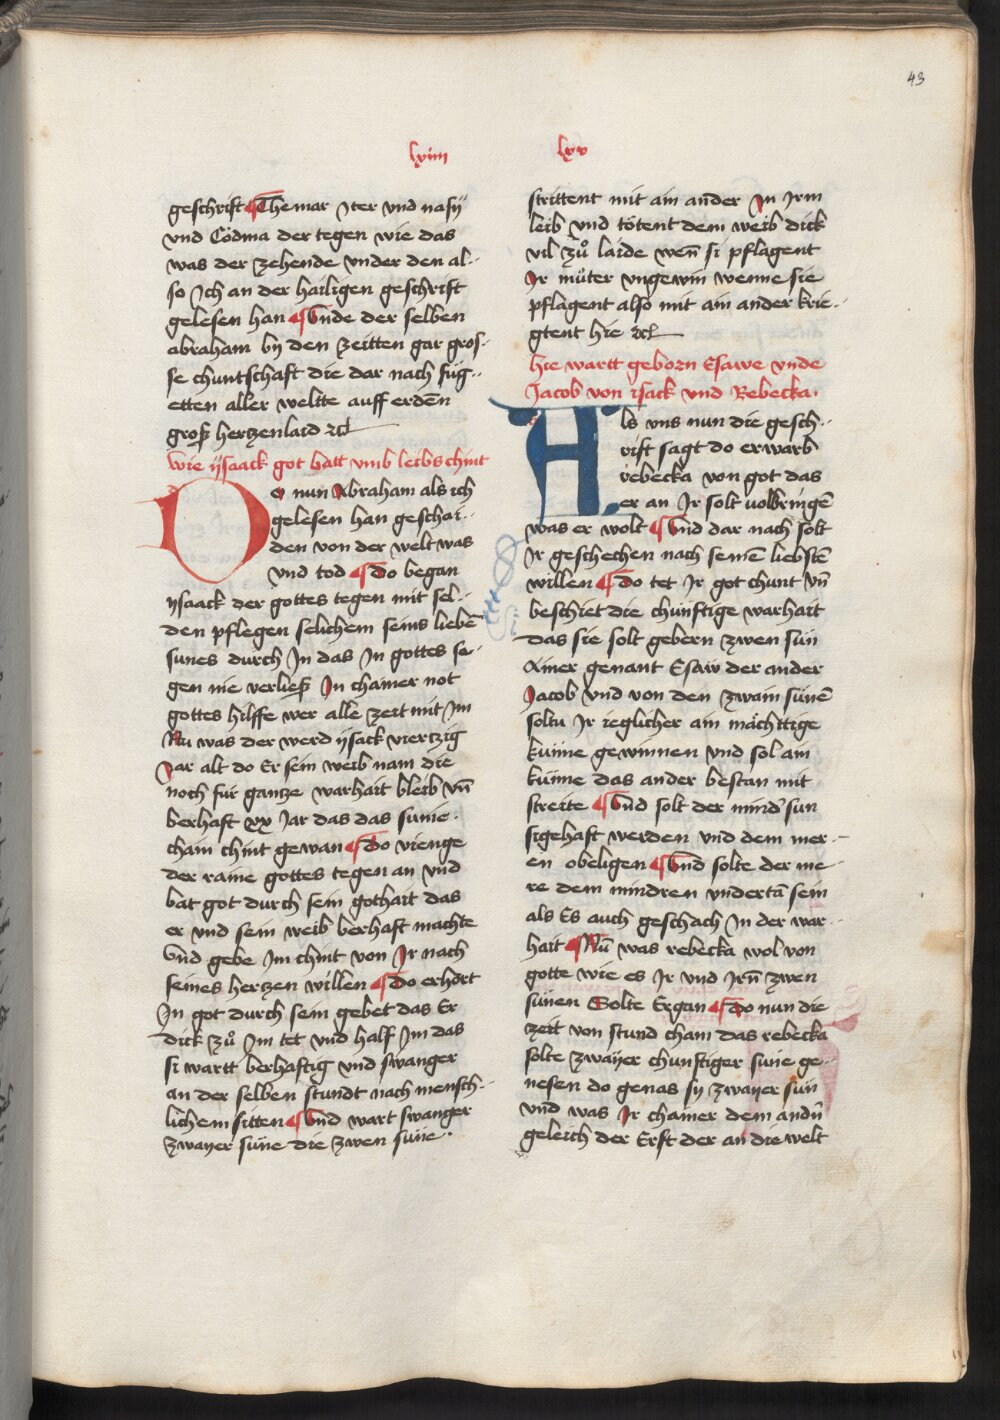 43
lxiiii
geschrift Themar Iter vnd nafÿ
vnd Codma der tegen wie das
was der zehende vnder den al-
so Ich an der hailigen geschrift
gelesen han Vnde der selben
abraham bÿ den zeitten gar gros-
se chuntschaft die dar nach füg-
etten aller weltte auff erdenn
groß hertzenlaid etc
Wie ÿsaack got batt vmb leibs chint
Do nun Abraham als ich
gelesen han geschai-
den von der welt was
vnd tod Do began
ÿsaack der gottes tegen mit sel-
den pflegen selichem seins liebē
sunes durch In das In gottes se-
gen nie verließ In chainer not
gottes hilffe wer alle zeit mit Im
Nu was der werd ÿsack viertzig
Iar alt do Er sein weib nam die
noch für gantze warhait bleib vn̄
berhaft xx Iar das das sunie
chain chint gewan Do vienge
der raine gottes tegen an vnd
bat got durch sein gothait das
er vnd sein weib berhaft machte
vnd gebe Im chint von Ir nach
seines hertzen willen Do erhört
In got durch sein gebet das Er
dick zů Im tet vnd half Im das
si wartt berhaftig vnd swanger
an der selben stundt nach mensch-
lichem sitten Vnd wart swanger
zwaÿer süne die zwen süne
lxv
strittent mit ain ander In Irm
leib vnd tötent dem weib dick
vil zů laide wen̄ si pflagent
Ir müter vngewin wenne sie
pflagent also mit ain ander krie-
gtent hie etc
Hie wartt geborn Esawe vnde
Jacob von ÿsack vnd Rebecka
Als vns nun die gesch-
rift sagt do erwarb
rebecka von got das
er an Ir solt volbringē
was er wolt Vnd dar nach solt
Ir geschechen nach seinē liebstē
willen Do tet Ir got chunt vn̄
beschiet die chünftige warhait
das sie solt gebern zwen sün
Ainer genant Esaw der ander
Jacob vnd von den zwain sünē
soltn Ir ieglicher ain mächttige
künne gewinnen vnd sol ain
künne das ander bestan mit
streite Vnd solt der mind sun
sigehaft werden vnd dem mer-
en obeligen Vnd solte der me-
re dem mindren vndertā sein
als Es auch geschach In der war-
hait Nu was rebecka wol von
gotte wie es Ir vnd Irn̄ zwen
sünen Solte Ergan Do nun die
zeit von stund cham das rebecka
solte zwaÿer chunftiger süne ge-
nesen do genas sÿ zwaÿer sün
vnd was Ir chainer dem andn̄
geleich der Erst der an die welt